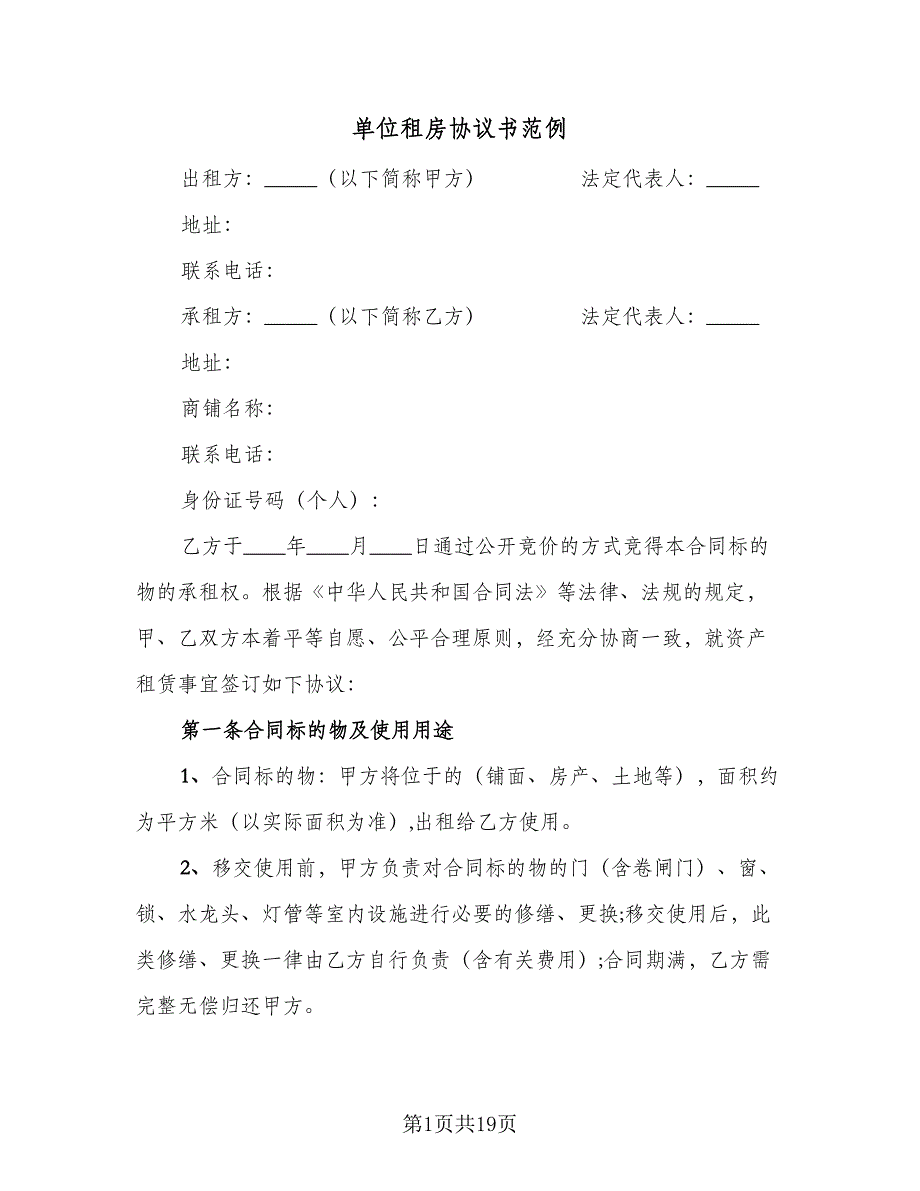 单位租房协议书范例
出租方：_____（以下简称甲方） 法定代表人：_____
地址：
联系电话：
承租方：_____（以下简称乙方） 法定代表人：_____
地址：
商铺名称：
联系电话：
身份证号码（个人）：
乙方于____年____月____日通过公开竞价的方式竞得本合同标的
物的承租权。根据《中华人民共和国合同法》等法律、法规的规定，
甲、乙双方本着平等自愿、公平合理原则，经充分协商一致，就资产
租赁事宜签订如下协议：
第一条合同标的物及使用用途
1、合同标的物：甲方将位于的（铺面、房产、土地等），面积约
为平方米（以实际面积为准）,出租给乙方使用。
2、移交使用前，甲方负责对合同标的物的门（含卷闸门）、窗、
锁、水龙头、灯管等室内设施进行必要的修缮、更换;移交使用后，此
类修缮、更换一律由乙方自行负责（含有关费用）;合同期满，乙方需
完整无偿归还甲方。
第1页共19页